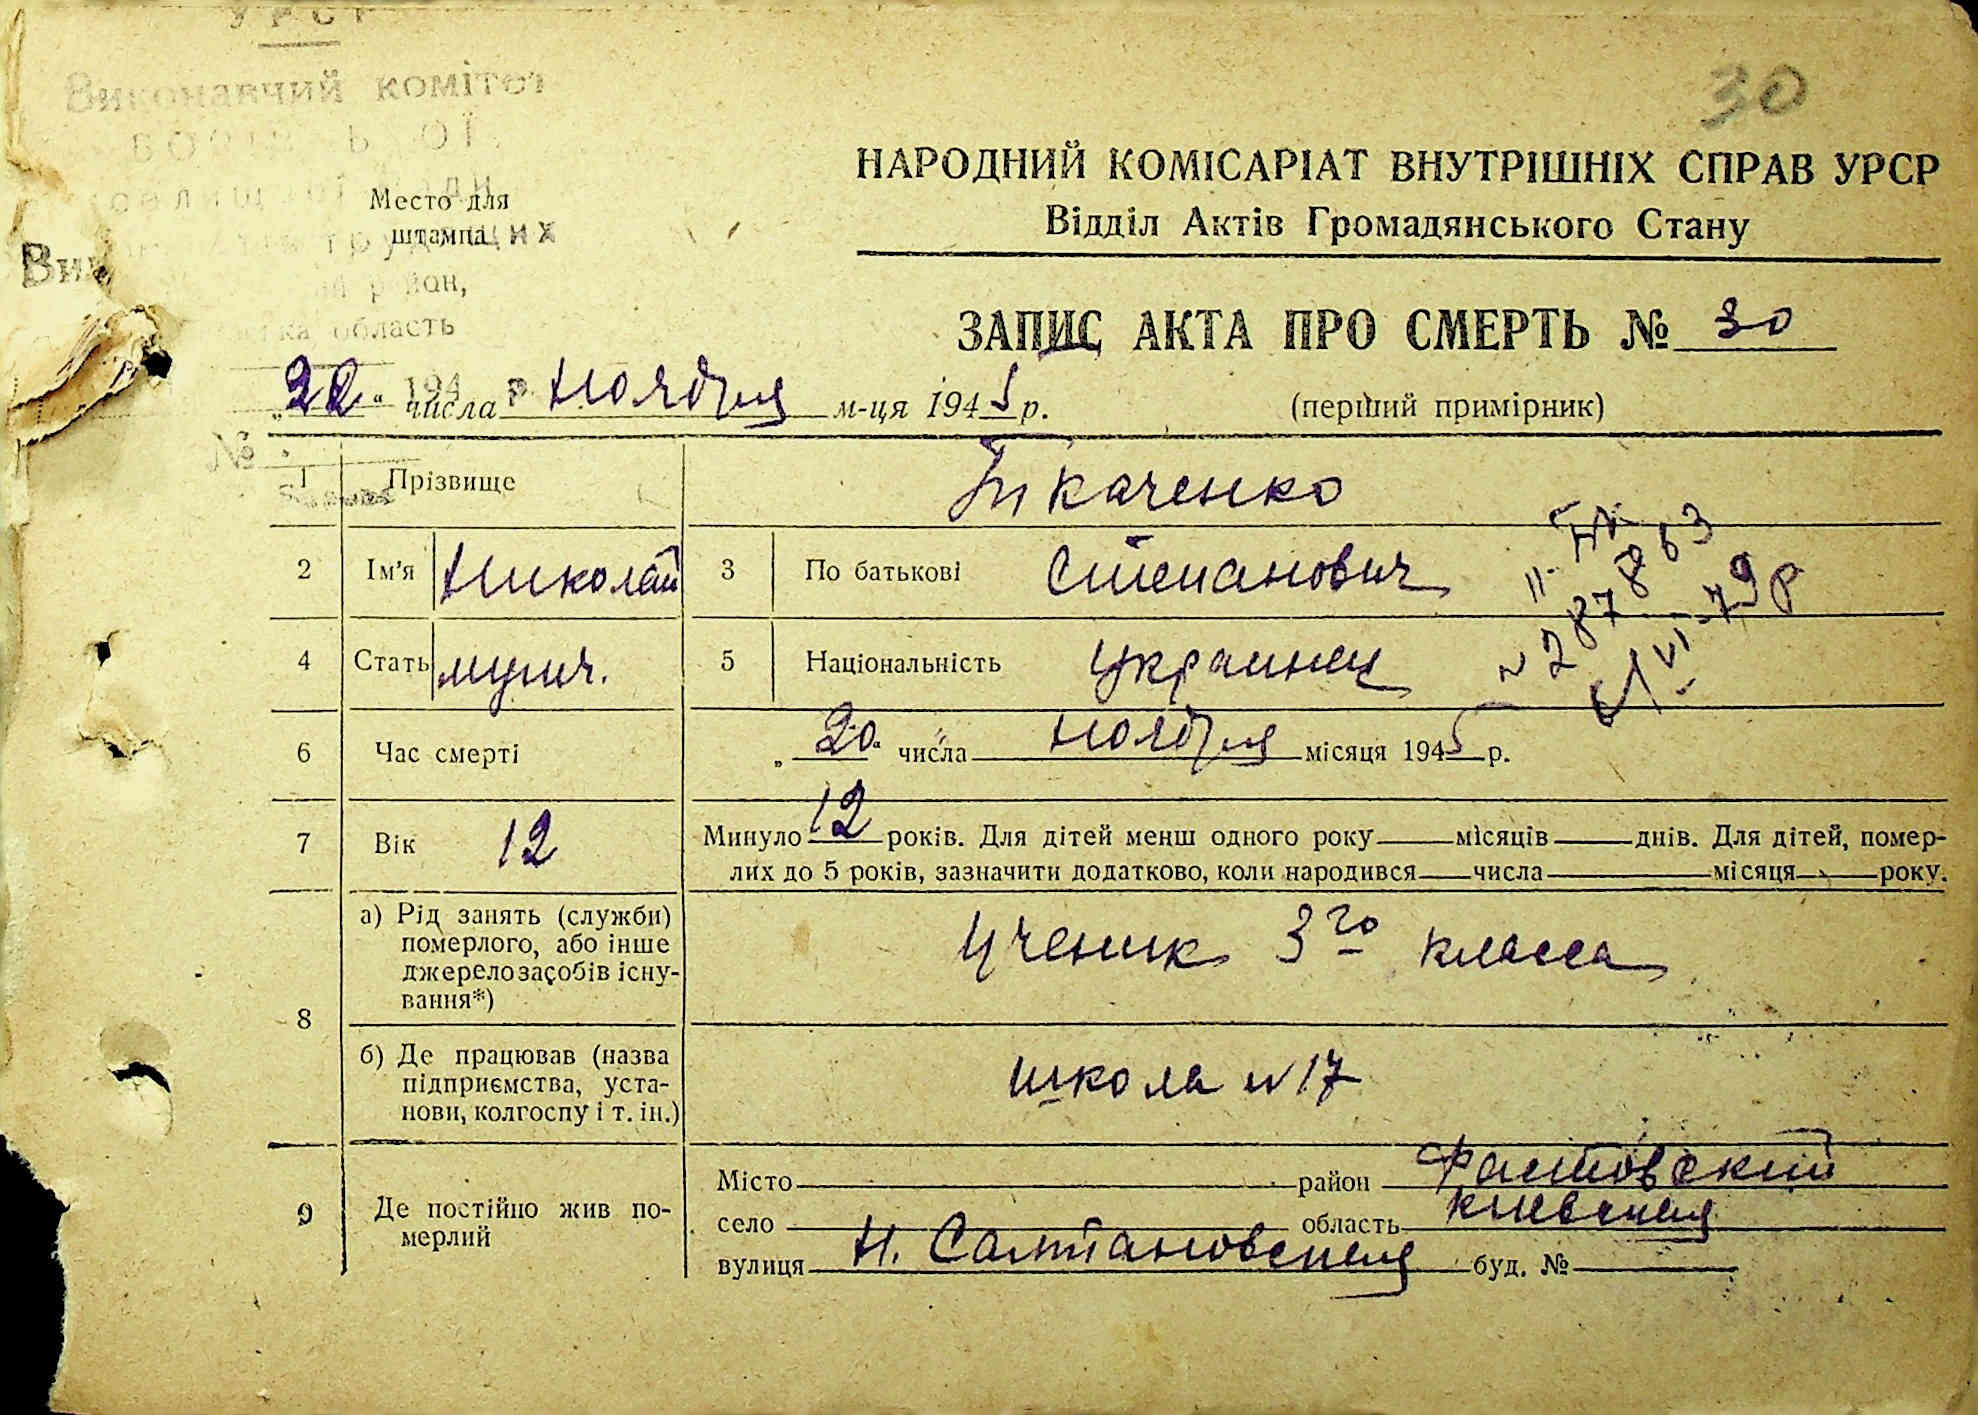 УРСР
Виконавчий комітет
30
НАРОДНИЙ КОМІСАРІАТ ВНУТРІШНІХ СПРАВ УРСР
Відділ Актів Громадянського Стану
Место для
штампа
район,
область
ЗАПИС АКТА ПРО СМЕРТЬ № 30
„22“ числа ноября м-ця 1945 р.
(перший примірник)
№
1 Прізвище Ткаченко
2 Ім'я Николай 3 По батькові Степанович
4 Стать мужч. 5 Національність украинец
II-БК
№ 287863
VI-79р
6 Час смерті „20“ числа ноября місяця 1945 р.
7 Вік 12 Минуло 12 років. Для дітей менш одного року місяців днів. Для дітей, помер-
лих до 5 років, зазначити додатково, коли народився числа місяця року.
8 а) Рід занять (служби) померлого, або інше джерело засобів існу-вання*) Ученик 3го класса
б) Де працював (назва підприємства, уста-нови, колгоспу і т. ін.) школа №17
9 Де постійно жив по-мерлий
Місто район Фастовский
село область Киевская
вулиця Н. Салтановская буд. №